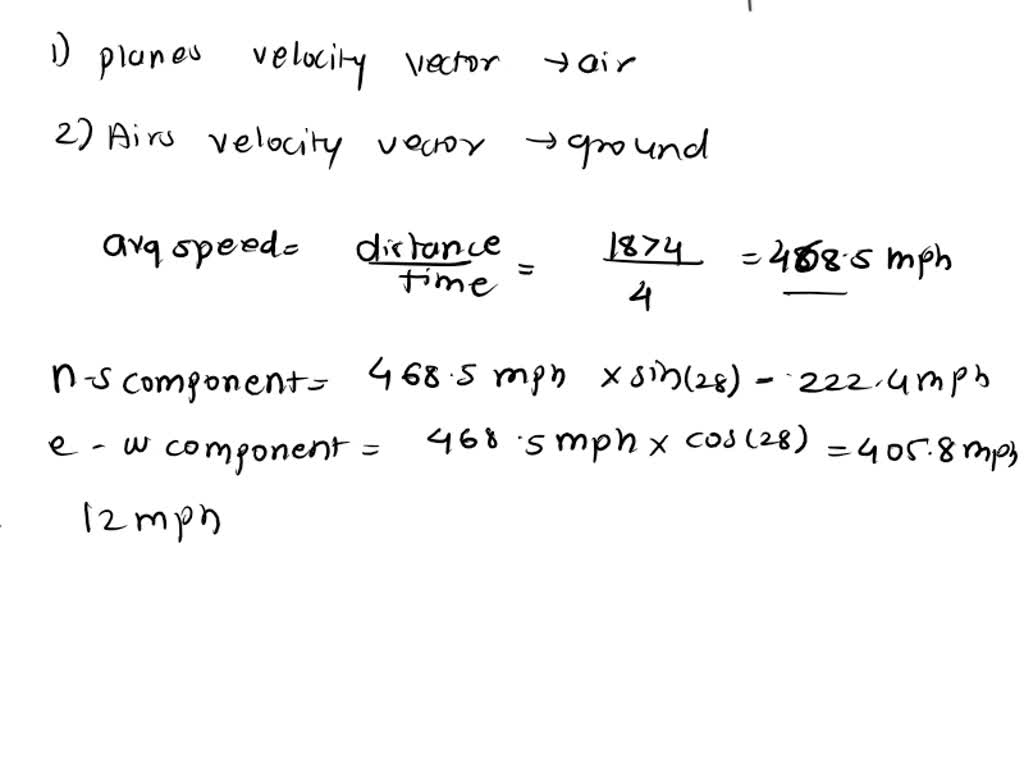 1) planes velocity vector → air
2) Airs velocity vector → ground
avg speed = distance / time = 1874 / 4 = 468.5 mph
n-s component = 468.5 mph x sin(28) - 222.4 mph
e - w component = 468.5 mph x cos(28) = 405.8 mph
12 mph